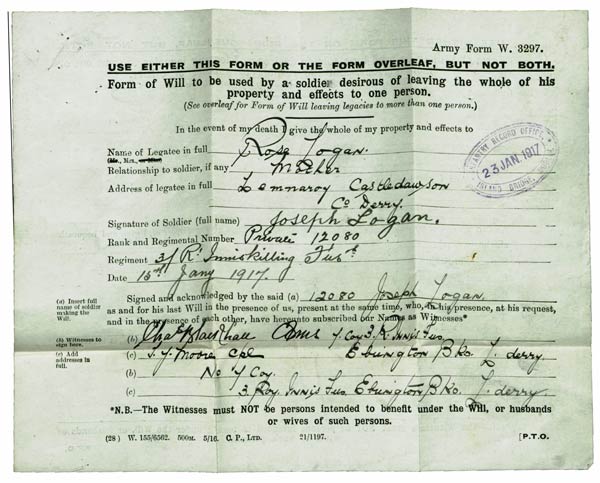 Army Form W. 3297.
USE EITHER THIS FORM OR THE FORM OVERLEAF, BUT NOT BOTH.
Form of Will to be used by a soldier desirous of leaving the whole of his
property and effects to one person.
(See overleaf for Form of Will leaving legacies to more than one person.)
In the event of my death I give the whole of my property and effects to
Name of Legatee in full Rose Logan.
(Mr., Mrs., or Miss)
Relationship to soldier, if any Mother
Address of legatee in full Lemnaroy Castledawson
Co Derry.
Signature of Soldier (full name) Joseph Logan.
Rank and Regimental Number Private 12080
Regiment 3/ Rl Inniskilling Fusrs
Date 15th Jany 1917.
INFANTRY RECORD OFFICE
23 JAN. 1917
ISLAND BRIDGE
(a) Insert full name of soldier making the Will.
Signed and acknowledged by the said (a) 12080 Joseph Logan.
as and for his last Will in the presence of us, present at the same time, who, in his presence, at his request,
and in the presence of each other, have hereunto subscribed our Names as Witnesses*
(b) Witnesses to sign here.
(b) Chas Blackhall Y Coy 3. R. Innis Fus.
(c) Add addresses in full.
(c) J. J. Moore Cpl Ebrington Bks L. derry
(b) No Y Coy.
(c) 3. Roy. Innis Fus Ebrington Bks. L. derry.
*N.B.—The Witnesses must NOT be persons intended to benefit under the Will, or husbands
or wives of such persons.
(28) W. 155/6562. 500M. 5/16. C. P., LTD. 21/1197. [P.T.O.